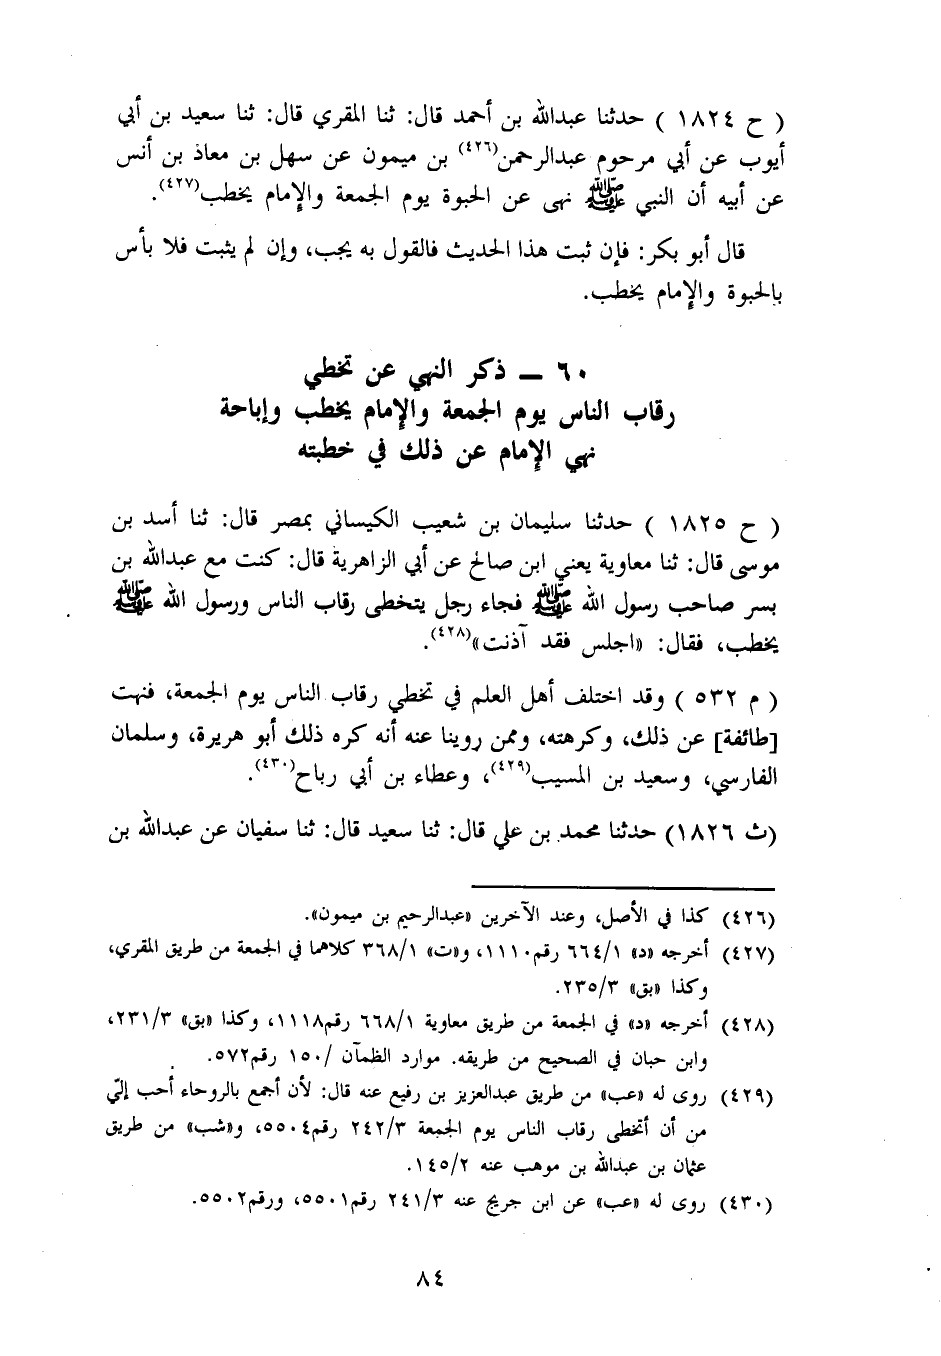 ( ح ١٨٢٤ ) حدثنا عبدالله بن أحمد قال: ثنا المقري قال: ثنا سعيد بن أبي
أيوب عن أبي مرحوم عبدالرحمن(٤٢٦) بن ميمون عن سهل بن معاذ بن أنس
عن أبيه أن النبي ﷺ نهى عن الحبوة يوم الجمعة والإمام يخطب(٤٢٧).
قال أبو بكر: فإن ثبت هذا الحديث فالقول به يجب، وإن لم يثبت فلا بأس
بالحبوة والإمام يخطب.
٦٠ ــ ذكر النهي عن تخطي
رقاب الناس يوم الجمعة والإمام يخطب وإباحة
نهي الإمام عن ذلك في خطبته
( ح ١٨٢٥ ) حدثنا سليمان بن شعيب الكيساني بمصر قال: ثنا أسد بن
موسى قال: ثنا معاوية يعني ابن صالح عن أبي الزاهرية قال: كنت مع عبدالله بن
بسر صاحب رسول الله ﷺ فجاء رجل يتخطى رقاب الناس ورسول الله ﷺ
يخطب، فقال: «اجلس فقد آذنت»(٤٢٨).
( م ٥٣٢ ) وقد اختلف أهل العلم في تخطي رقاب الناس يوم الجمعة، فنهت
[طائفة] عن ذلك، وكرهته، وممن روينا عنه أنه كره ذلك أبو هريرة، وسلمان
الفارسي، وسعيد بن المسيب(٤٢٩)، وعطاء بن أبي رباح(٤٣٠).
(ث ١٨٢٦) حدثنا محمد بن علي قال: ثنا سعيد قال: ثنا سفيان عن عبدالله بن
(٤٢٦) كذا في الأصل، وعند الآخرين «عبدالرحيم بن ميمون».
(٤٢٧) أخرجه «د» ٦٦٤/١ رقم١١١٠، و«ت» ٣٦٨/١ كلاهما في الجمعة من طريق المقري،
وكذا «بق» ٢٣٥/٣.
(٤٢٨) أخرجه «د» في الجمعة من طريق معاوية ٦٦٨/١ رقم١١١٨، وكذا «بق» ٢٣١/٣،
وابن حبان في الصحيح من طريقه. موارد الظمآن /١٥٠ رقم٥٧٢.
(٤٢٩) روى له «عب» من طريق عبدالعزيز بن رفيع عنه قال: لأن أجمع بالروحاء أحب إليّ
من أن أتخطى رقاب الناس يوم الجمعة ٢٤٢/٣ رقم٥٥٠٤، و«شب» من طريق
عثمان بن عبدالله بن موهب عنه ١٤٥/٢.
(٤٣٠) روى له «عب» عن ابن جريج عنه ٢٤١/٣ رقم٥٥٠١، ورقم٥٥٠٢.
٨٤